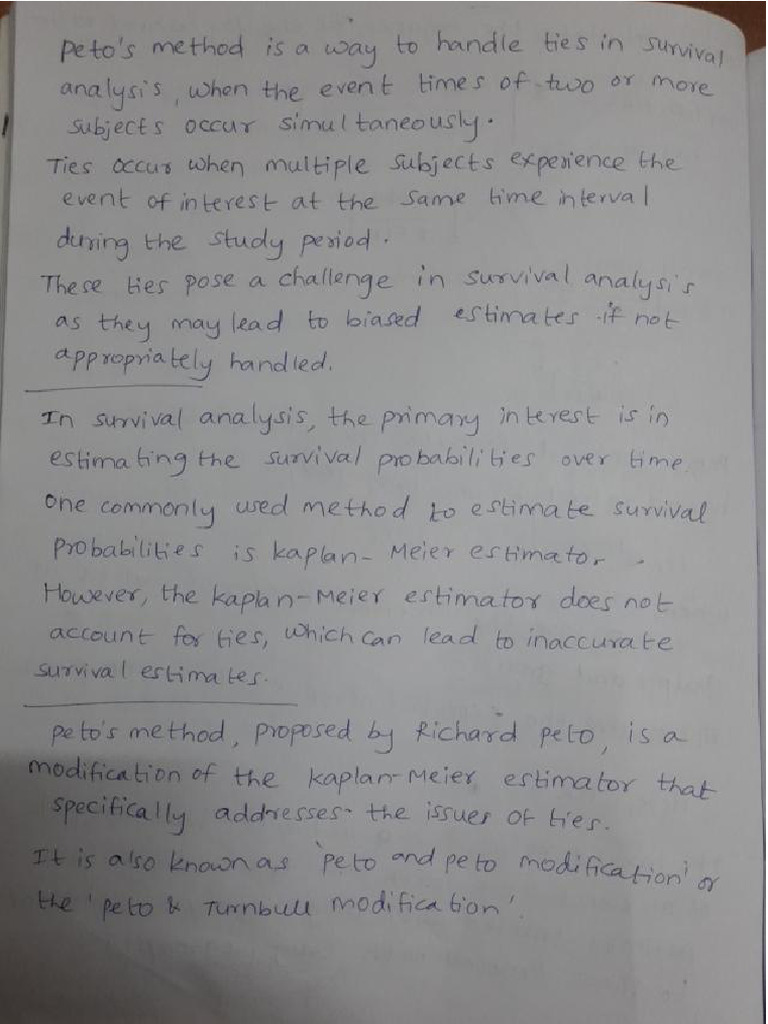 Peto's method is a way to handle ties in survival
analysis, when the event times of two or more
subjects occur simultaneously.
Ties occur when multiple subjects experience the
event of interest at the same time interval
during the study period.
These ties pose a challenge in survival analysis
as they may lead to biased estimates if not
appropriately handled.
In survival analysis, the primary interest is in
estimating the survival probabilities over time
One commonly used method to estimate survival
probabilities is kaplan-Meier estimator.
However, the kaplan-Meier estimator does not
account for ties, which can lead to inaccurate
survival estimates.
peto's method, proposed by Richard peto, is a
modification of the kaplan-Meier estimator that
specifically addresses the issues of ties.
It is also known as 'peto and peto modification' or
the 'peto & Turnbull modification'.